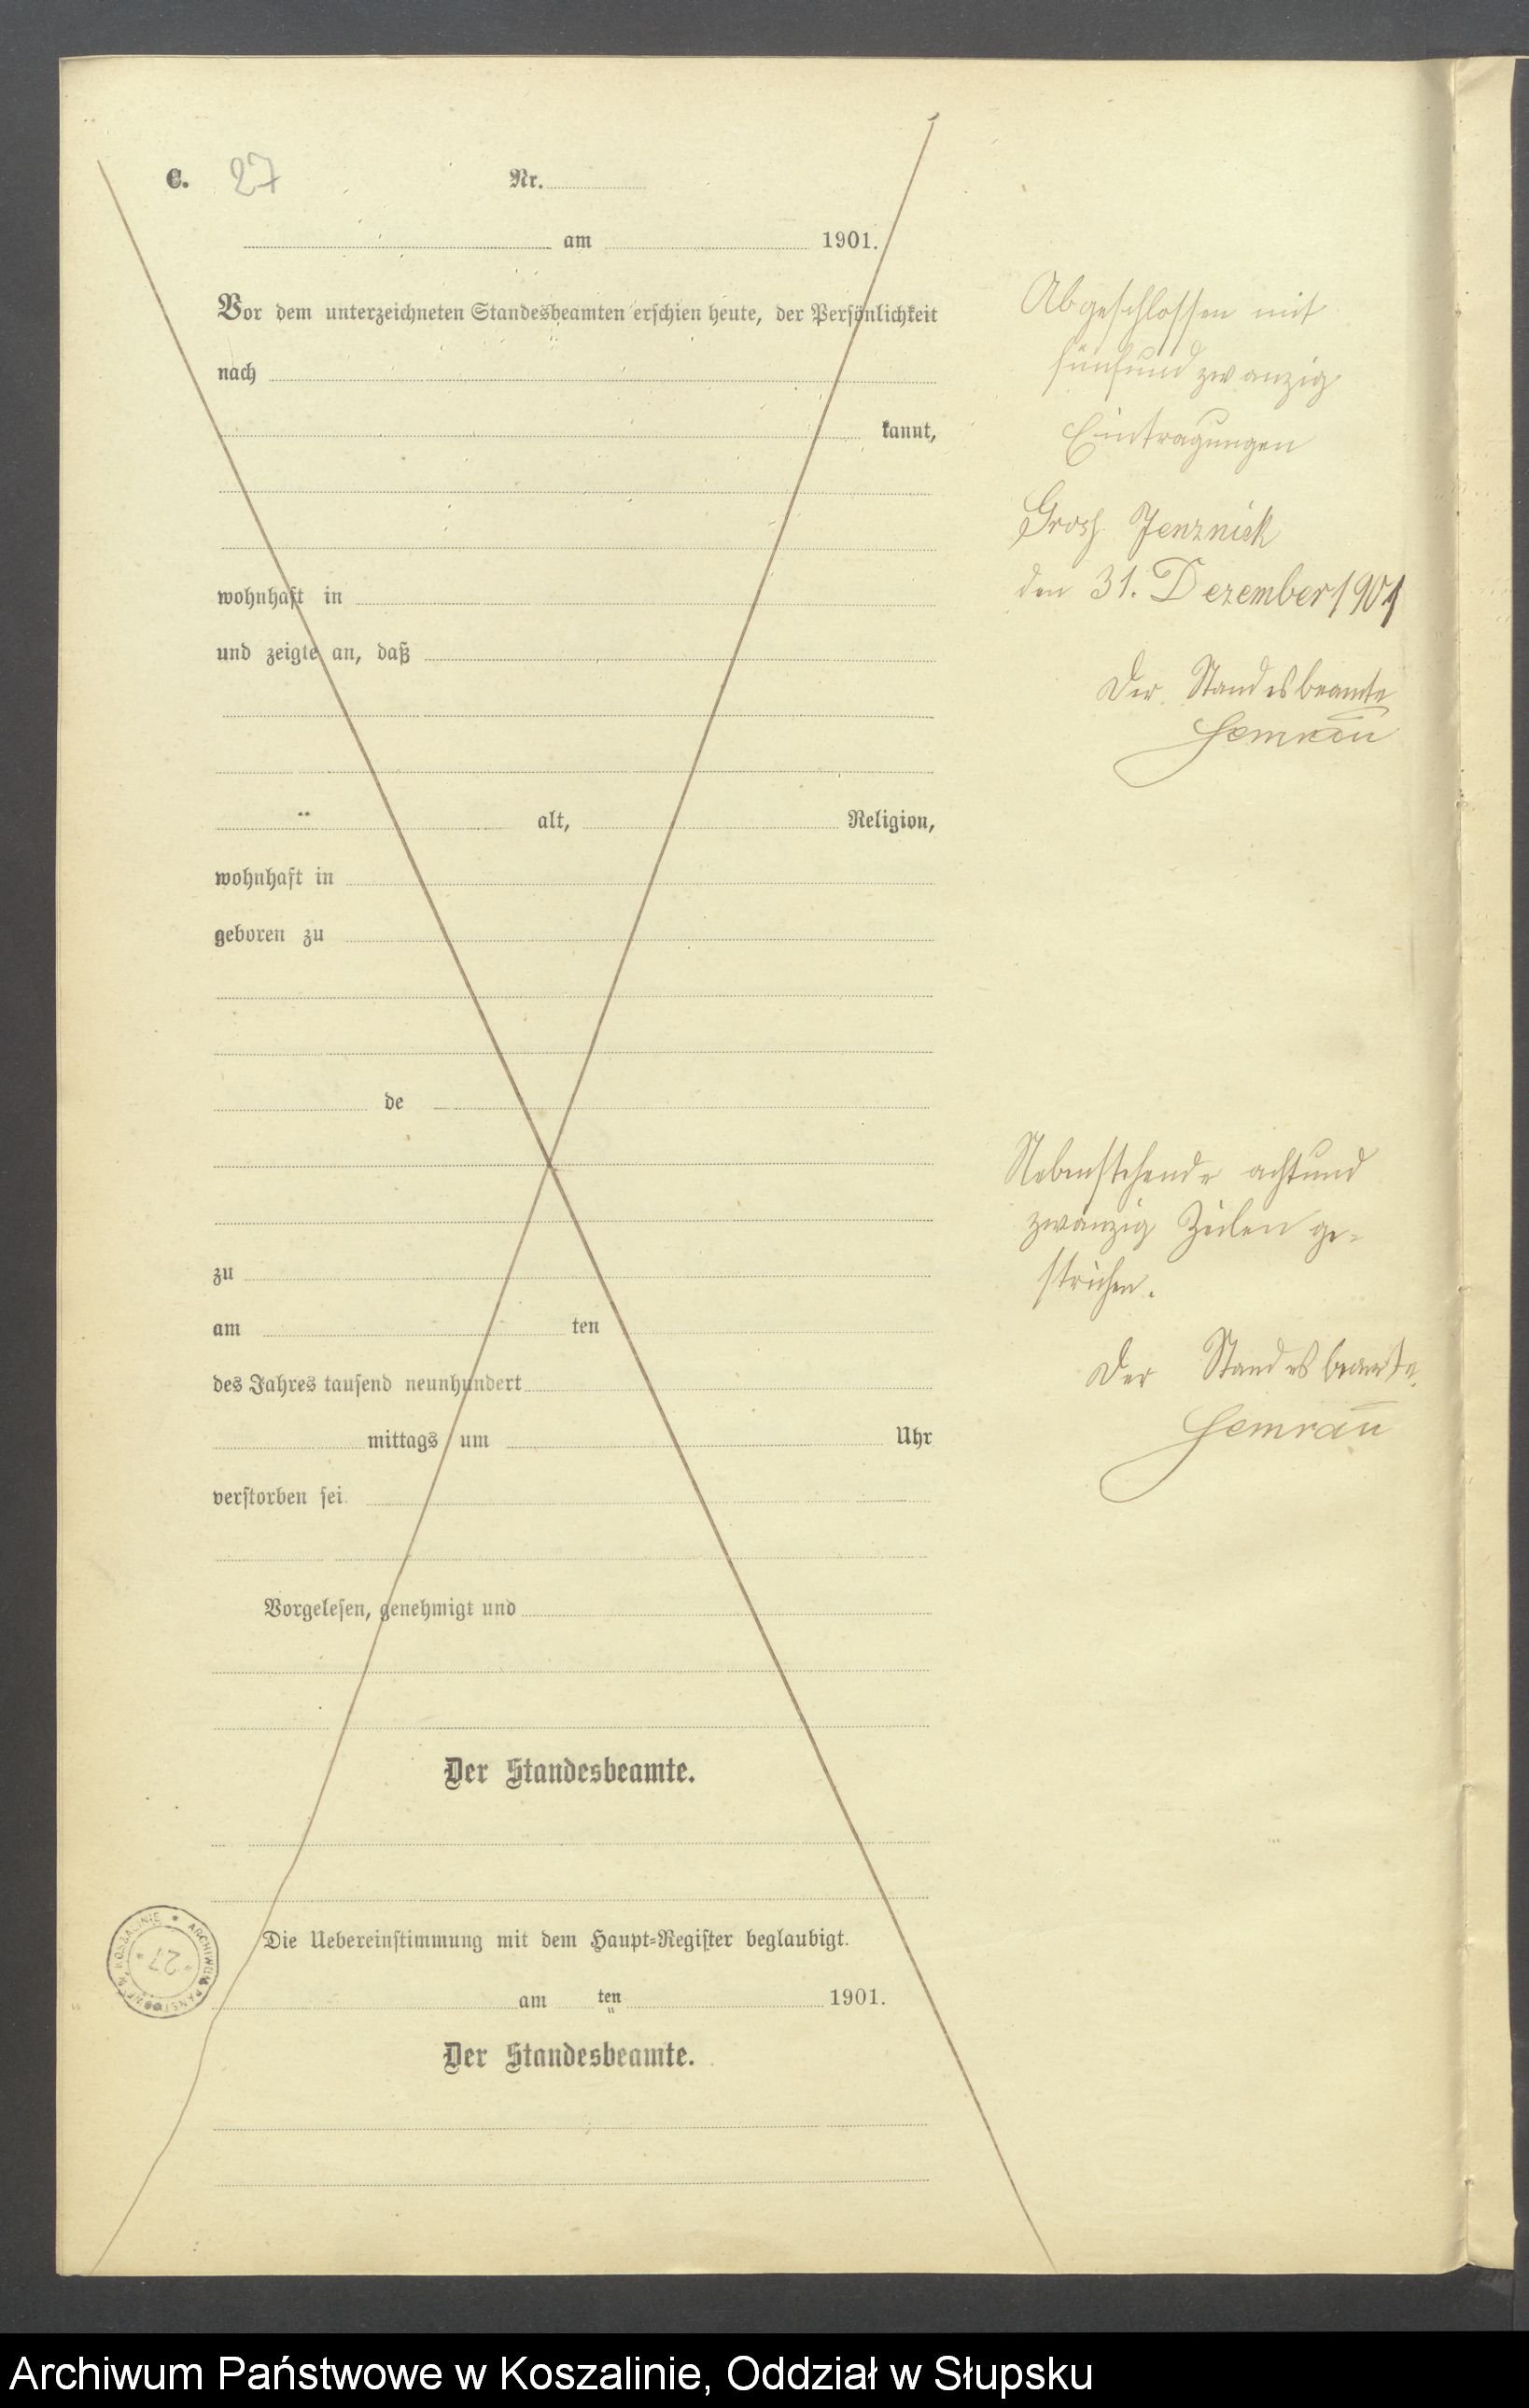 C. 27 Nr.
am 1901.
Vor dem unterzeichneten Standesbeamten erschien heute, der Persönlichkeit
nach
kannt,
wohnhaft in
und zeigte an, daß
alt, Religion,
wohnhaft in
geboren zu
de
zu
am ten
des Jahres tausend neunhundert
mittags um Uhr
verstorben sei
Vorgelesen, genehmigt und
Der Standesbeamte.
Die Uebereinstimmung mit dem Haupt-Register beglaubigt.
am ten 1901.
Der Standesbeamte.
Abgeschlossen mit
fünfundzwanzig
Eintragungen
Gross Jenznick
den 31. Dezember 1901
Der Standesbeamte
Semrau
Nebenstehende achtund
zwanzig Zeilen ge-
strichen.
Der Standesbeamte.
Semrau
ARCHIWUM PAŃSTWOWE W KOSZALINIE
27
Archiwum Państwowe w Koszalinie, Oddział w Słupsku